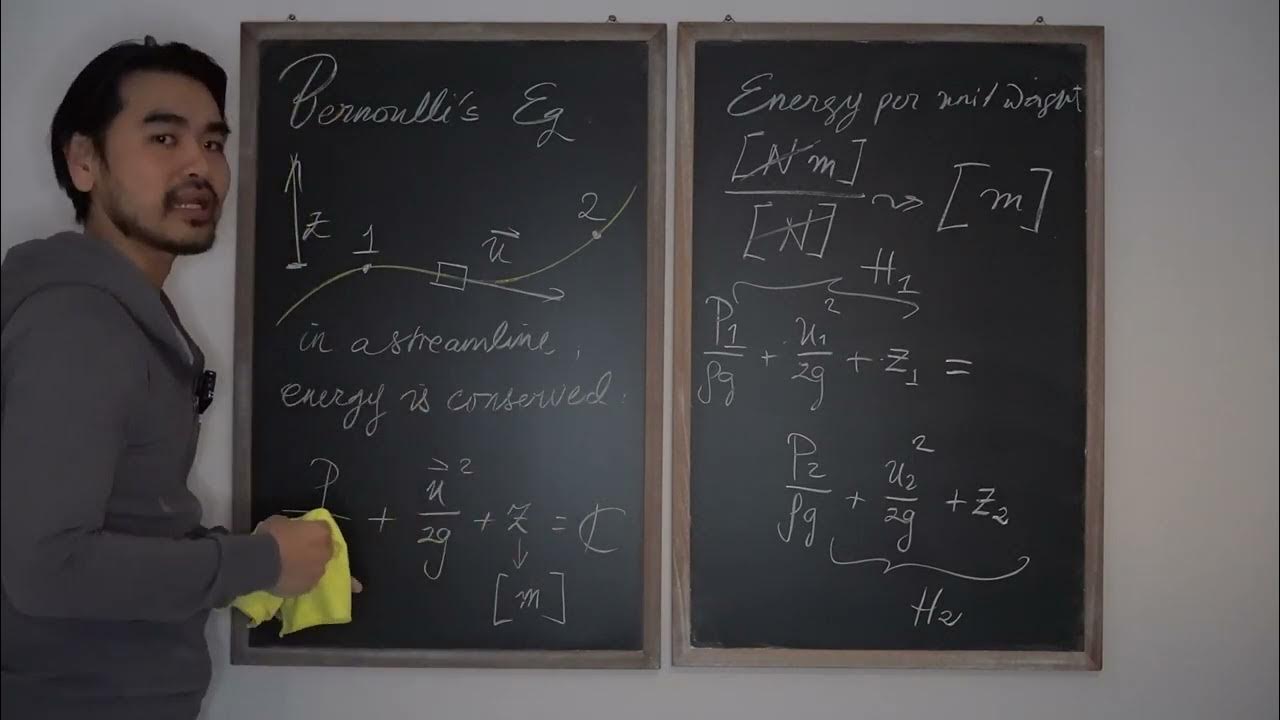 Bernoulli's Eq
z 1 u⃗ 2
in a streamline,
energy is conserved.
P + u⃗²/2g + z = ₵
[m]
Energy per unit weight
[N m]/[N] ⇝ [m]
H₁
P₁/ρg + u₁²/2g + z₁ =
P₂/ρg + u₂²/2g + z₂
H₂